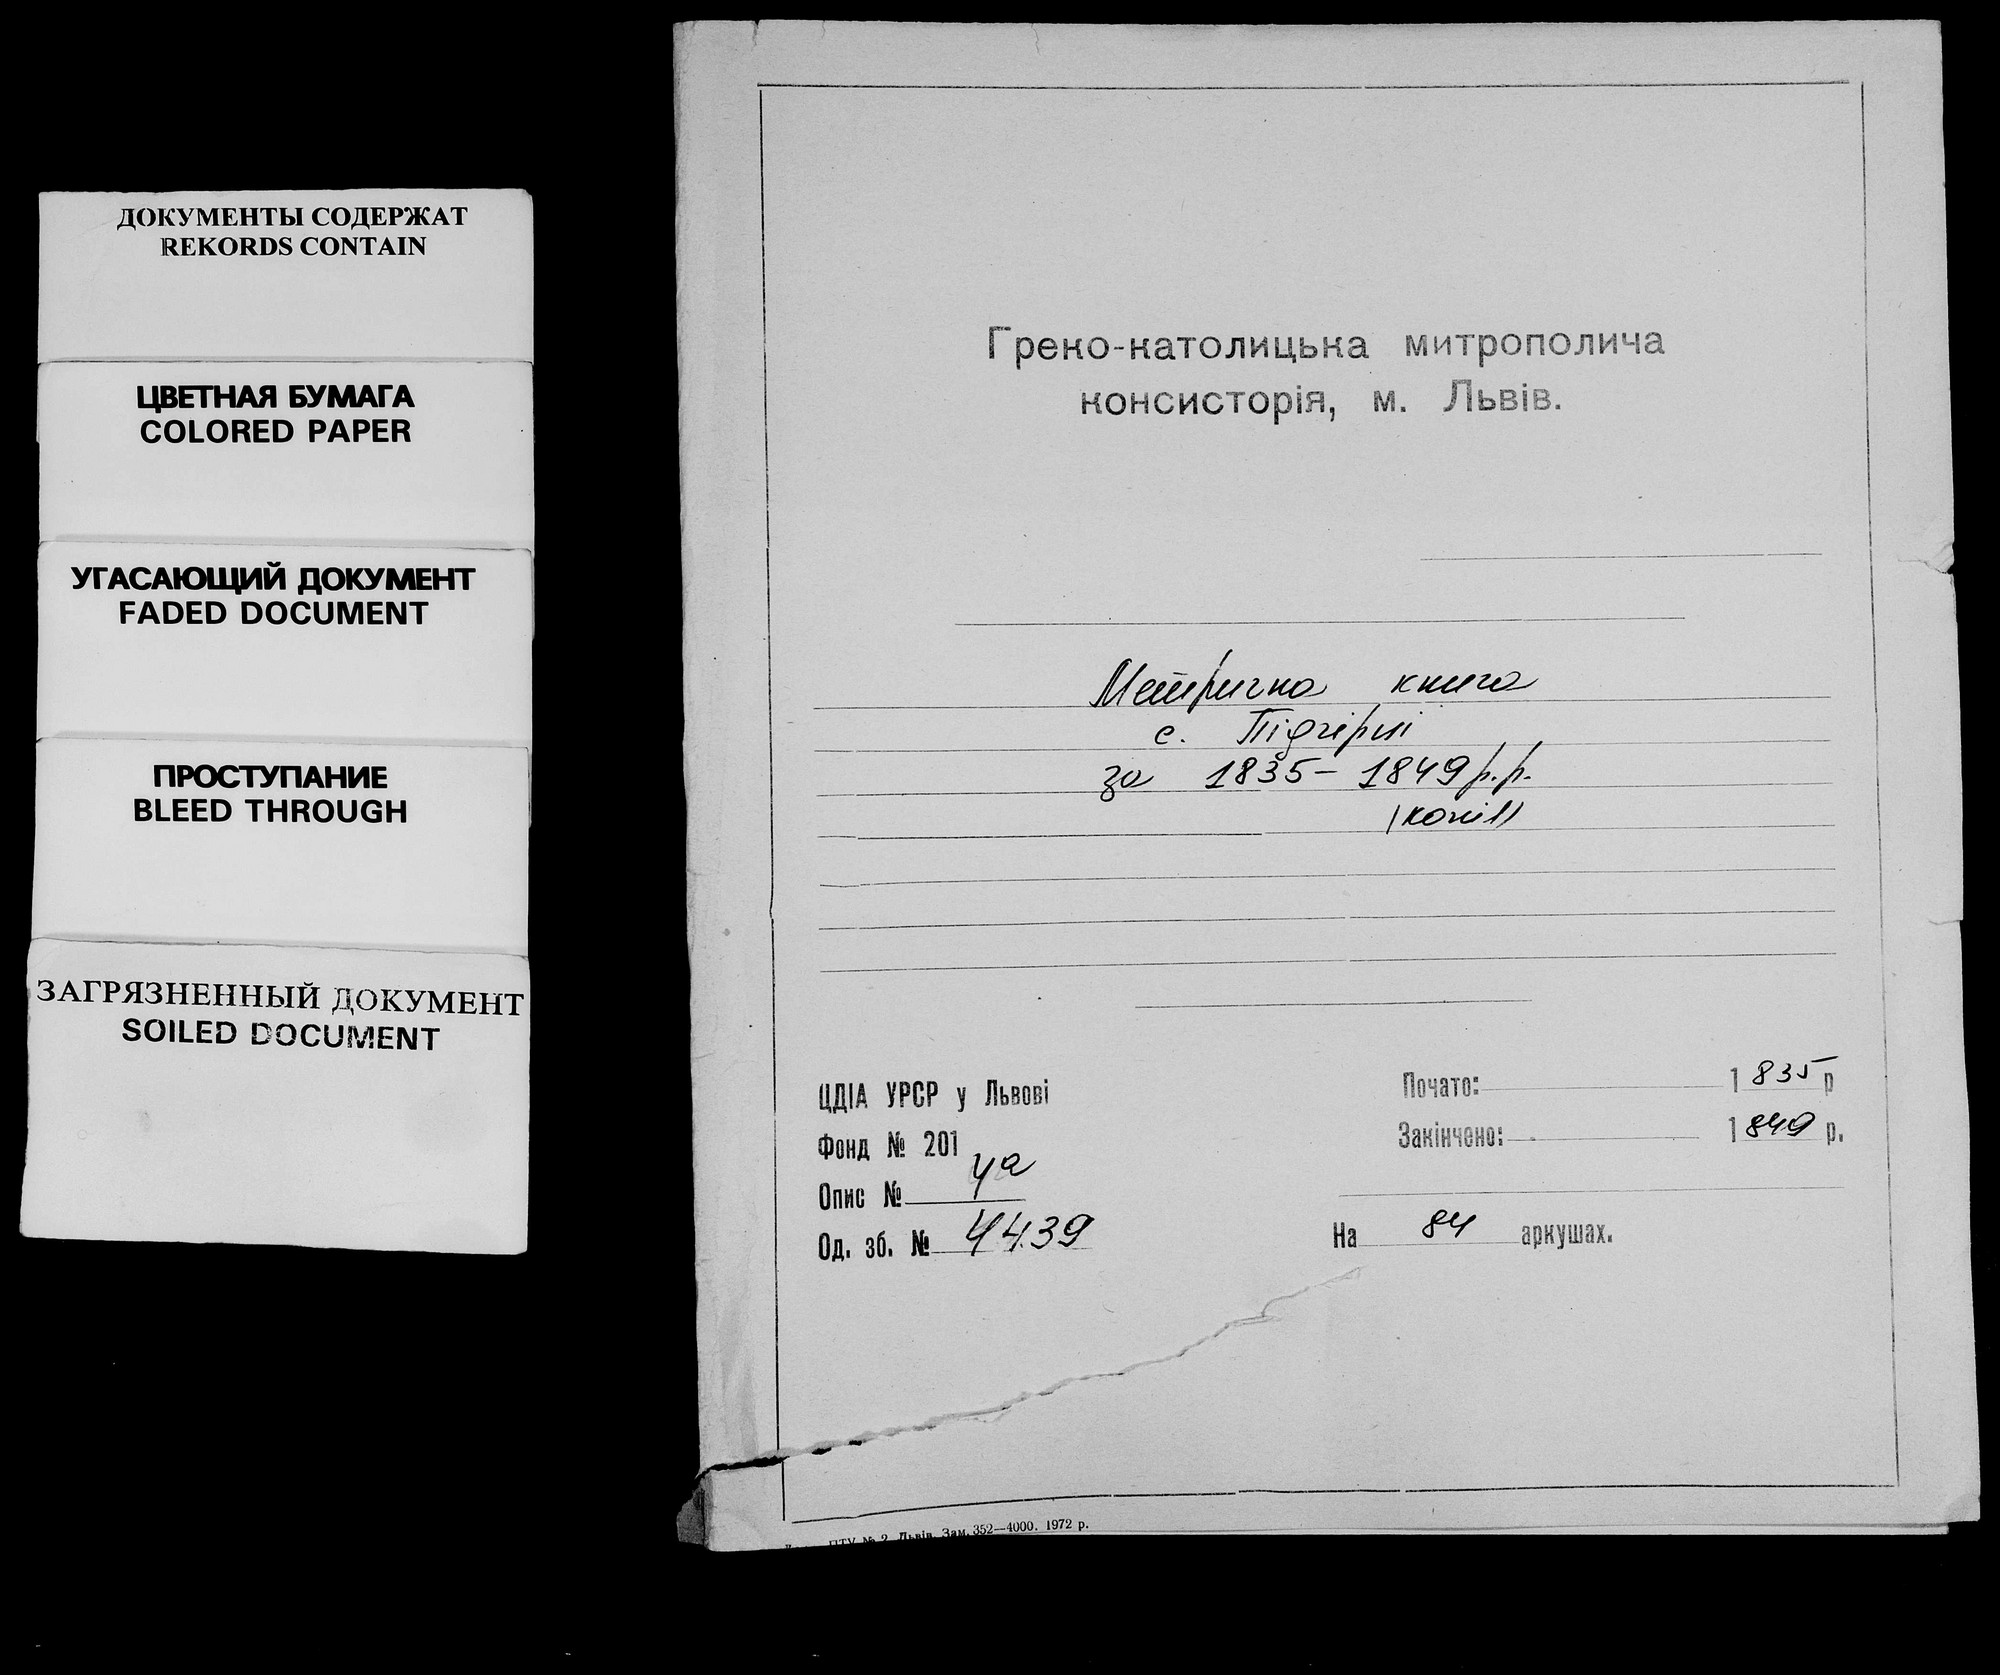 ДОКУМЕНТЫ СОДЕРЖАТ
REKORDS CONTAIN
ЦВЕТНАЯ БУМАГА
COLORED PAPER
УГАСАЮЩИЙ ДОКУМЕНТ
FADED DOCUMENT
ПРОСТУПАНИЕ
BLEED THROUGH
ЗАГРЯЗНЕННЫЙ ДОКУМЕНТ
SOILED DOCUMENT
Греко-католицька митрополича
консисторія, м. Львів.
Метрична книга
с. Підгірці
за 1835-1849 р.р.
(копії)
ЦДІА УРСР у Львові
Фонд № 201
Опис № 4а
Од. зб. № 4439
Почато: 1835 р
Закінчено: 1849 р.
На 84 аркушах.
ПТУ № 2 Львів. Зам. 352—4000. 1972 р.